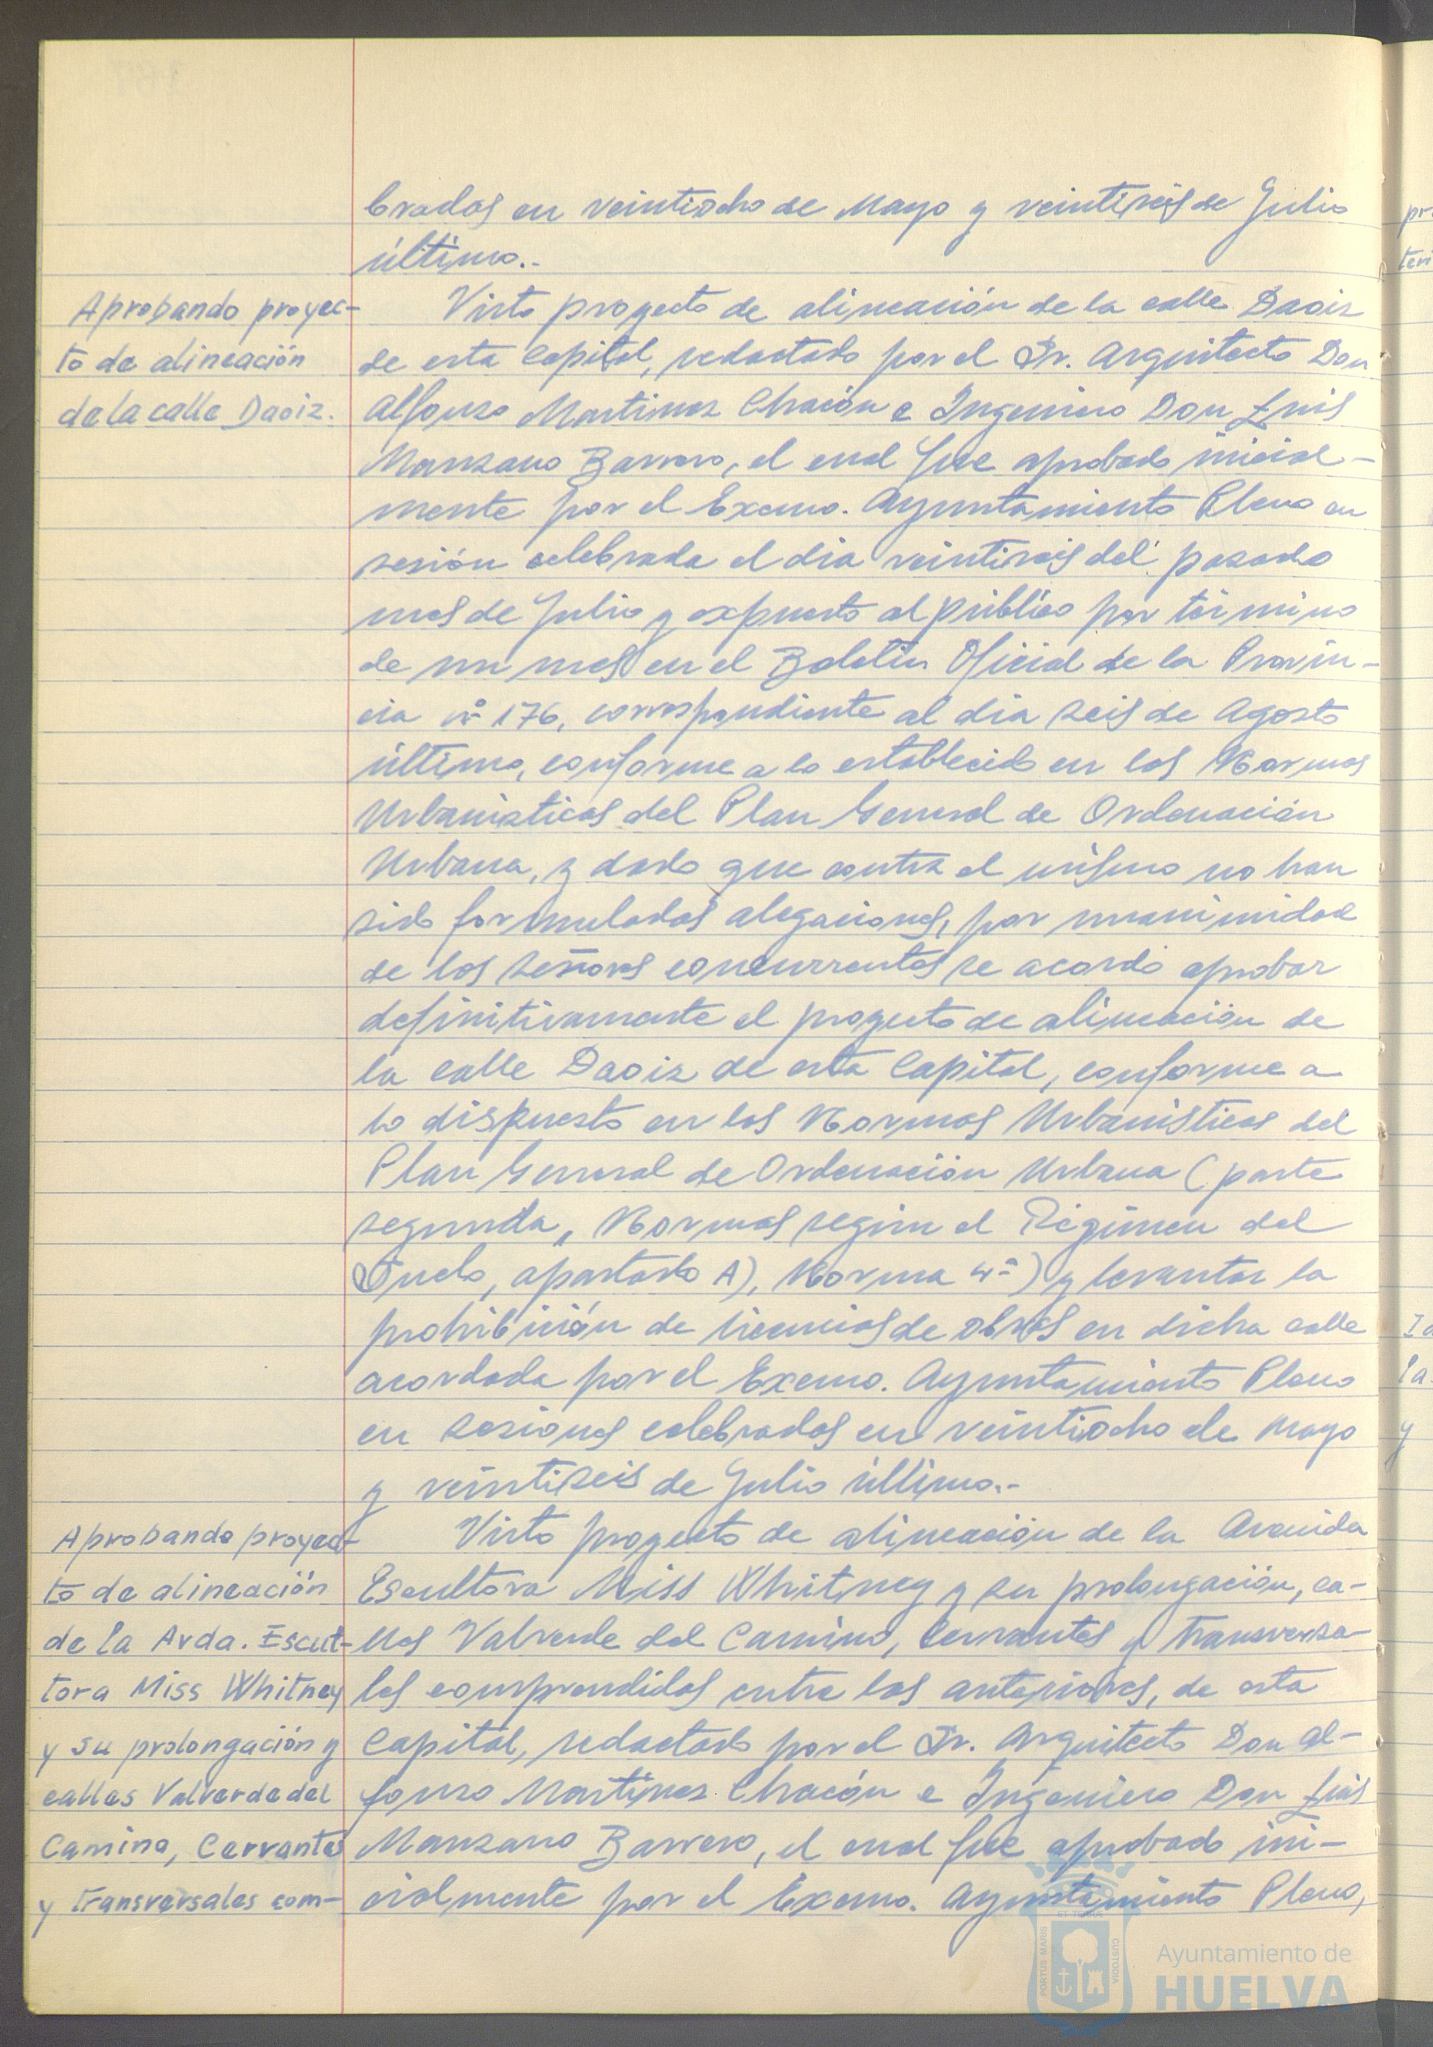 bradas en veintiocho de Mayo y veintiseis de Julio
último.-
Aprobando proyec-
to de alineación
de la calle Daoiz.
Visto proyecto de alineación de la calle Daoiz
de esta Capital, redactado por el Sr. Arquitecto Don
Alfonso Martinez Chacón e Ingeniero Don Luis
Manzano Barrero, el cual fue aprobado inicial-
mente por el Excmo. Ayuntamiento Pleno en
sesión celebrada el dia veintiseis del pasado
mes de Julio y expuesto al público por término
de un mes en el Boletin Oficial de la Provin-
cia nº 176, correspondiente al dia seis de Agosto
último, conforme a lo establecido en las Normas
Urbanisticas del Plan General de Ordenación
Urbana, y dado que contra el mismo no han
sido formuladas alegaciones, por unanimidad
de los señores concurrentes se acordó aprobar
definitivamente el proyecto de alineación de
la calle Daoiz de esta Capital, conforme a
lo dispuesto en las Normas Urbanísticas del
Plan General de Ordenación Urbana (parte
segunda, Normas según el Régimen del
Suelo, apartado A), Norma 4ª) y levantar la
prohibición de licencias de obras en dicha calle
acordada por el Excmo. Ayuntamiento Pleno
en sesiones celebradas en veintiocho de Mayo
y veintiseis de Julio último.-
Aprobando proyec-
to de alineación
de la Avda. Escul-
tora Miss Whitney
y su prolongación y
calles Valverde del
Camino, Cervantes
y transversales com-
Visto proyecto de alineación de la Avenida
Escultora Miss Whitney y su prolongación, ca-
lles Valverde del Camino, Cervantes y transversa-
les comprendidas entre las anteriores, de esta
Capital, redactado por el Sr. Arquitecto Don Al-
fonso Martinez Chacón e Ingeniero Don Luis
Manzano Barrero, el cual fue aprobado ini-
cialmente por el Excmo. Ayuntamiento Pleno,
PORTUS MARIS
ET TERRAE
CUSTODIA
Ayuntamiento de
HUELVA